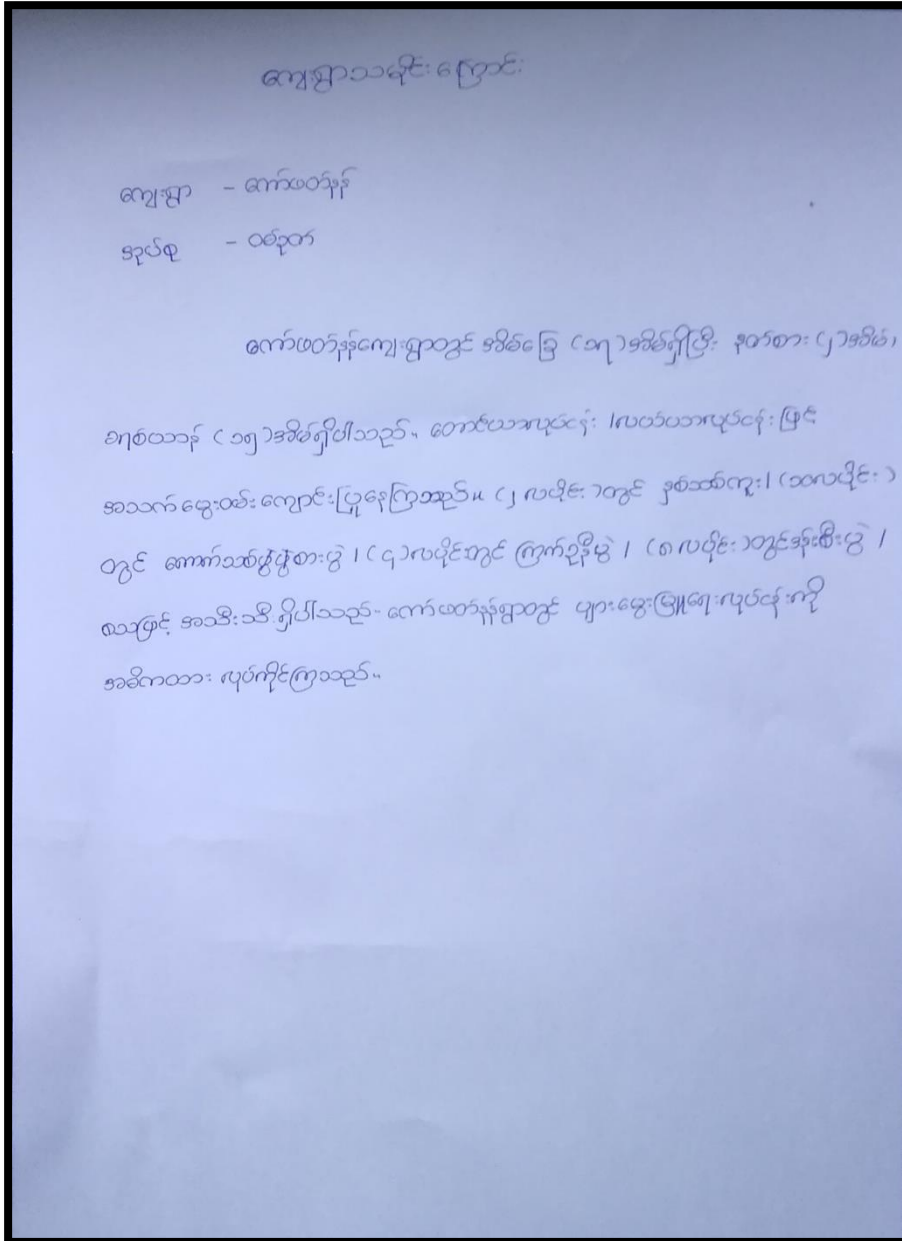 ကျေးရွာသမိုင်းကြောင်း
ကျေးရွာ - ကော်ဖတ်နန်
အုပ်စု - ဝစ်ဥတ်
ကော်ဖတ်နန်ကျေးရွာတွင် အိမ်ခြေ (၁၇) အိမ်ရှိပြီး နတ်စား (၂) အိမ်၊
ခရစ်ယာန် (၁၅) အိမ်ရှိပါသည်။ တောင်ယာလုပ်ငန်း ၊လယ်ယာလုပ်ငန်း ဖြင့်
အသက်မွေးဝမ်းကျောင်းပြုနေကြသည်။ (၂ လပိုင်း) တွင် နှစ်သစ်ကူး၊ (၁၀လပိုင်း)
တွင် ကောက်သစ်ပွဲစားပွဲ ၊ (၄) လပိုင်းတွင် ကြက်ဥနီပွဲ ၊ (၈ လပိုင်း) တွင်ဒန်းစီးပွဲ ၊
စသဖြင့် အသီးသီး ရှိပါသည်။ ကော်ဖတ်နန်ရွာတွင် ပျားမွေးမြူရေးလုပ်ငန်းကို
အဓိကထား လုပ်ကိုင်ကြသည်။